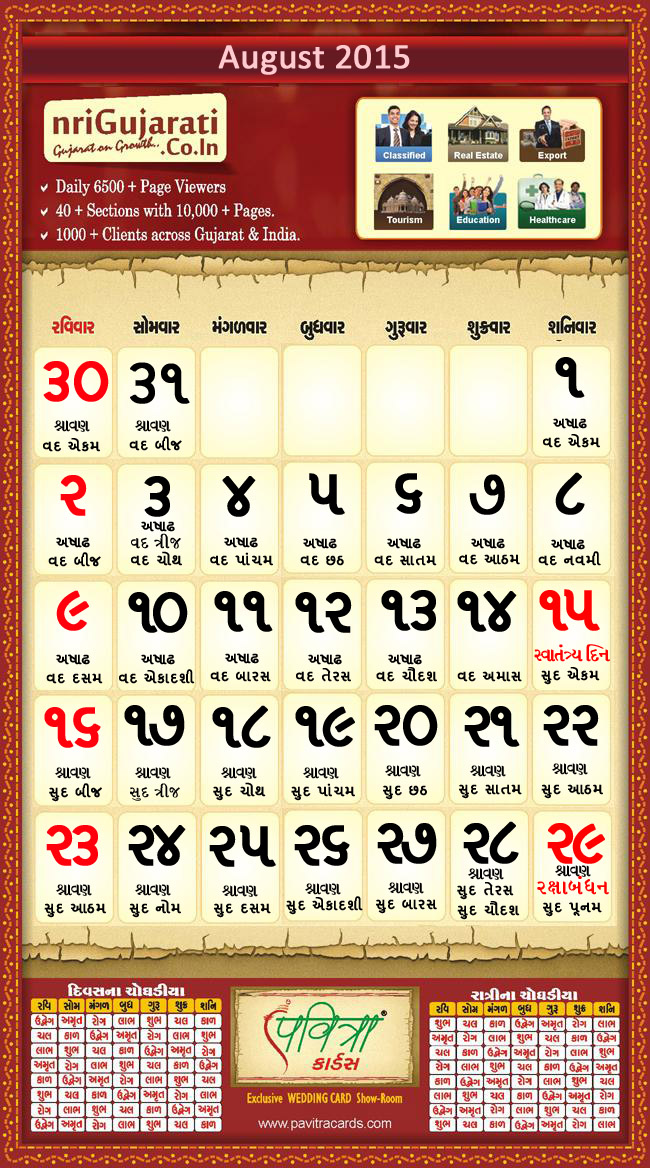 August 2015
nriGujarati
Gujarat on Growth..
.Co.In
Daily 6500 + Page Viewers
40 + Sections with 10,000 + Pages.
1000 + Clients across Gujarat & India.
Classified Real Estate Export
Tourism Education Healthcare
રવિવાર સોમવાર મંગળવાર બુધવાર ગુરૂવાર શુક્રવાર શનિવાર
૩૦ ૩૧ ૧
શ્રાવણ શ્રાવણ અષાઢ
વદ એકમ વદ બીજ વદ એકમ
૨ ૩ ૪ ૫ ૬ ૭ ૮
અષાઢ અષાઢ અષાઢ અષાઢ અષાઢ અષાઢ અષાઢ
વદ ત્રીજ
વદ બીજ વદ ચોથ વદ પાંચમ વદ છઠ વદ સાતમ વદ આઠમ વદ નવમી
૯ ૧૦ ૧૧ ૧૨ ૧૩ ૧૪ ૧૫
અષાઢ અષાઢ અષાઢ અષાઢ અષાઢ સ્વાતંત્ર્ય દિન
વદ દસમ વદ એકાદશી વદ બારસ વદ તેરસ વદ ચૌદશ વદ અમાસ સુદ એકમ
૧૬ ૧૭ ૧૮ ૧૯ ૨૦ ૨૧ ૨૨
શ્રાવણ શ્રાવણ શ્રાવણ શ્રાવણ શ્રાવણ શ્રાવણ શ્રાવણ
સુદ બીજ સુદ ત્રીજ સુદ ચોથ સુદ પાંચમ સુદ છઠ સુદ સાતમ સુદ આઠમ
૨૩ ૨૪ ૨૫ ૨૬ ૨૭ ૨૮ ૨૯
શ્રાવણ શ્રાવણ શ્રાવણ શ્રાવણ શ્રાવણ શ્રાવણ શ્રાવણ
સુદ તેરસ રક્ષાબંધન
સુદ આઠમ સુદ નોમ સુદ દસમ સુદ એકાદશી સુદ બારસ સુદ ચૌદશ સુદ પૂનમ
દિવસના ચોઘડીયા
રવિ સોમ મંગળ બુધ ગુરૂ શુક્ર શનિ
ઉદ્વેગ અમૃત રોગ લાભ શુભ ચલ કાળ
ચલ કાળ ઉદ્વેગ અમૃત રોગ લાભ શુભ
લાભ શુભ ચલ કાળ ઉદ્વેગ અમૃત રોગ
અમૃત રોગ લાભ શુભ ચલ કાળ ઉદ્વેગ
કાળ ઉદ્વેગ અમૃત રોગ લાભ શુભ ચલ
શુભ ચલ કાળ ઉદ્વેગ અમૃત રોગ લાભ
રોગ લાભ શુભ ચલ કાળ ઉદ્વેગ અમૃત
ઉદ્વેગ અમૃત રોગ લાભ શુભ ચલ કાળ
પવિત્રા®
કાર્ડસ
Exclusive WEDDING CARD Show-Room
www.pavitracards.com
રાત્રીના ચોઘડીયા
રવિ સોમ મંગળ બુધ ગુરૂ શુક્ર શનિ
શુભ ચલ કાળ ઉદ્વેગ અમૃત રોગ લાભ
અમૃત રોગ લાભ શુભ ચલ કાળ ઉદ્વેગ
ચલ કાળ ઉદ્વેગ અમૃત રોગ લાભ શુભ
રોગ લાભ શુભ ચલ કાળ ઉદ્વેગ અમૃત
કાળ ઉદ્વેગ અમૃત રોગ લાભ શુભ ચલ
લાભ શુભ ચલ કાળ ઉદ્વેગ અમૃત રોગ
ઉદ્વેગ અમૃત રોગ લાભ શુભ ચલ કાળ
શુભ ચલ કાળ ઉદ્વેગ અમૃત રોગ લાભ